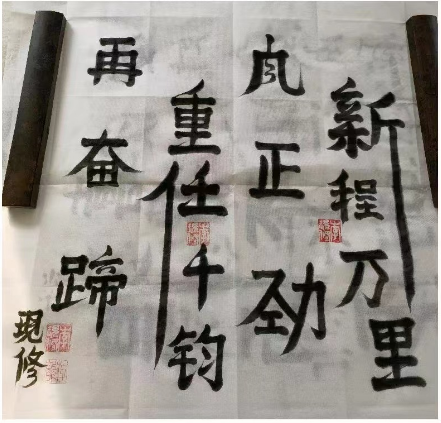 新程万里
风正劲
重任千钧
再奋蹄
现修